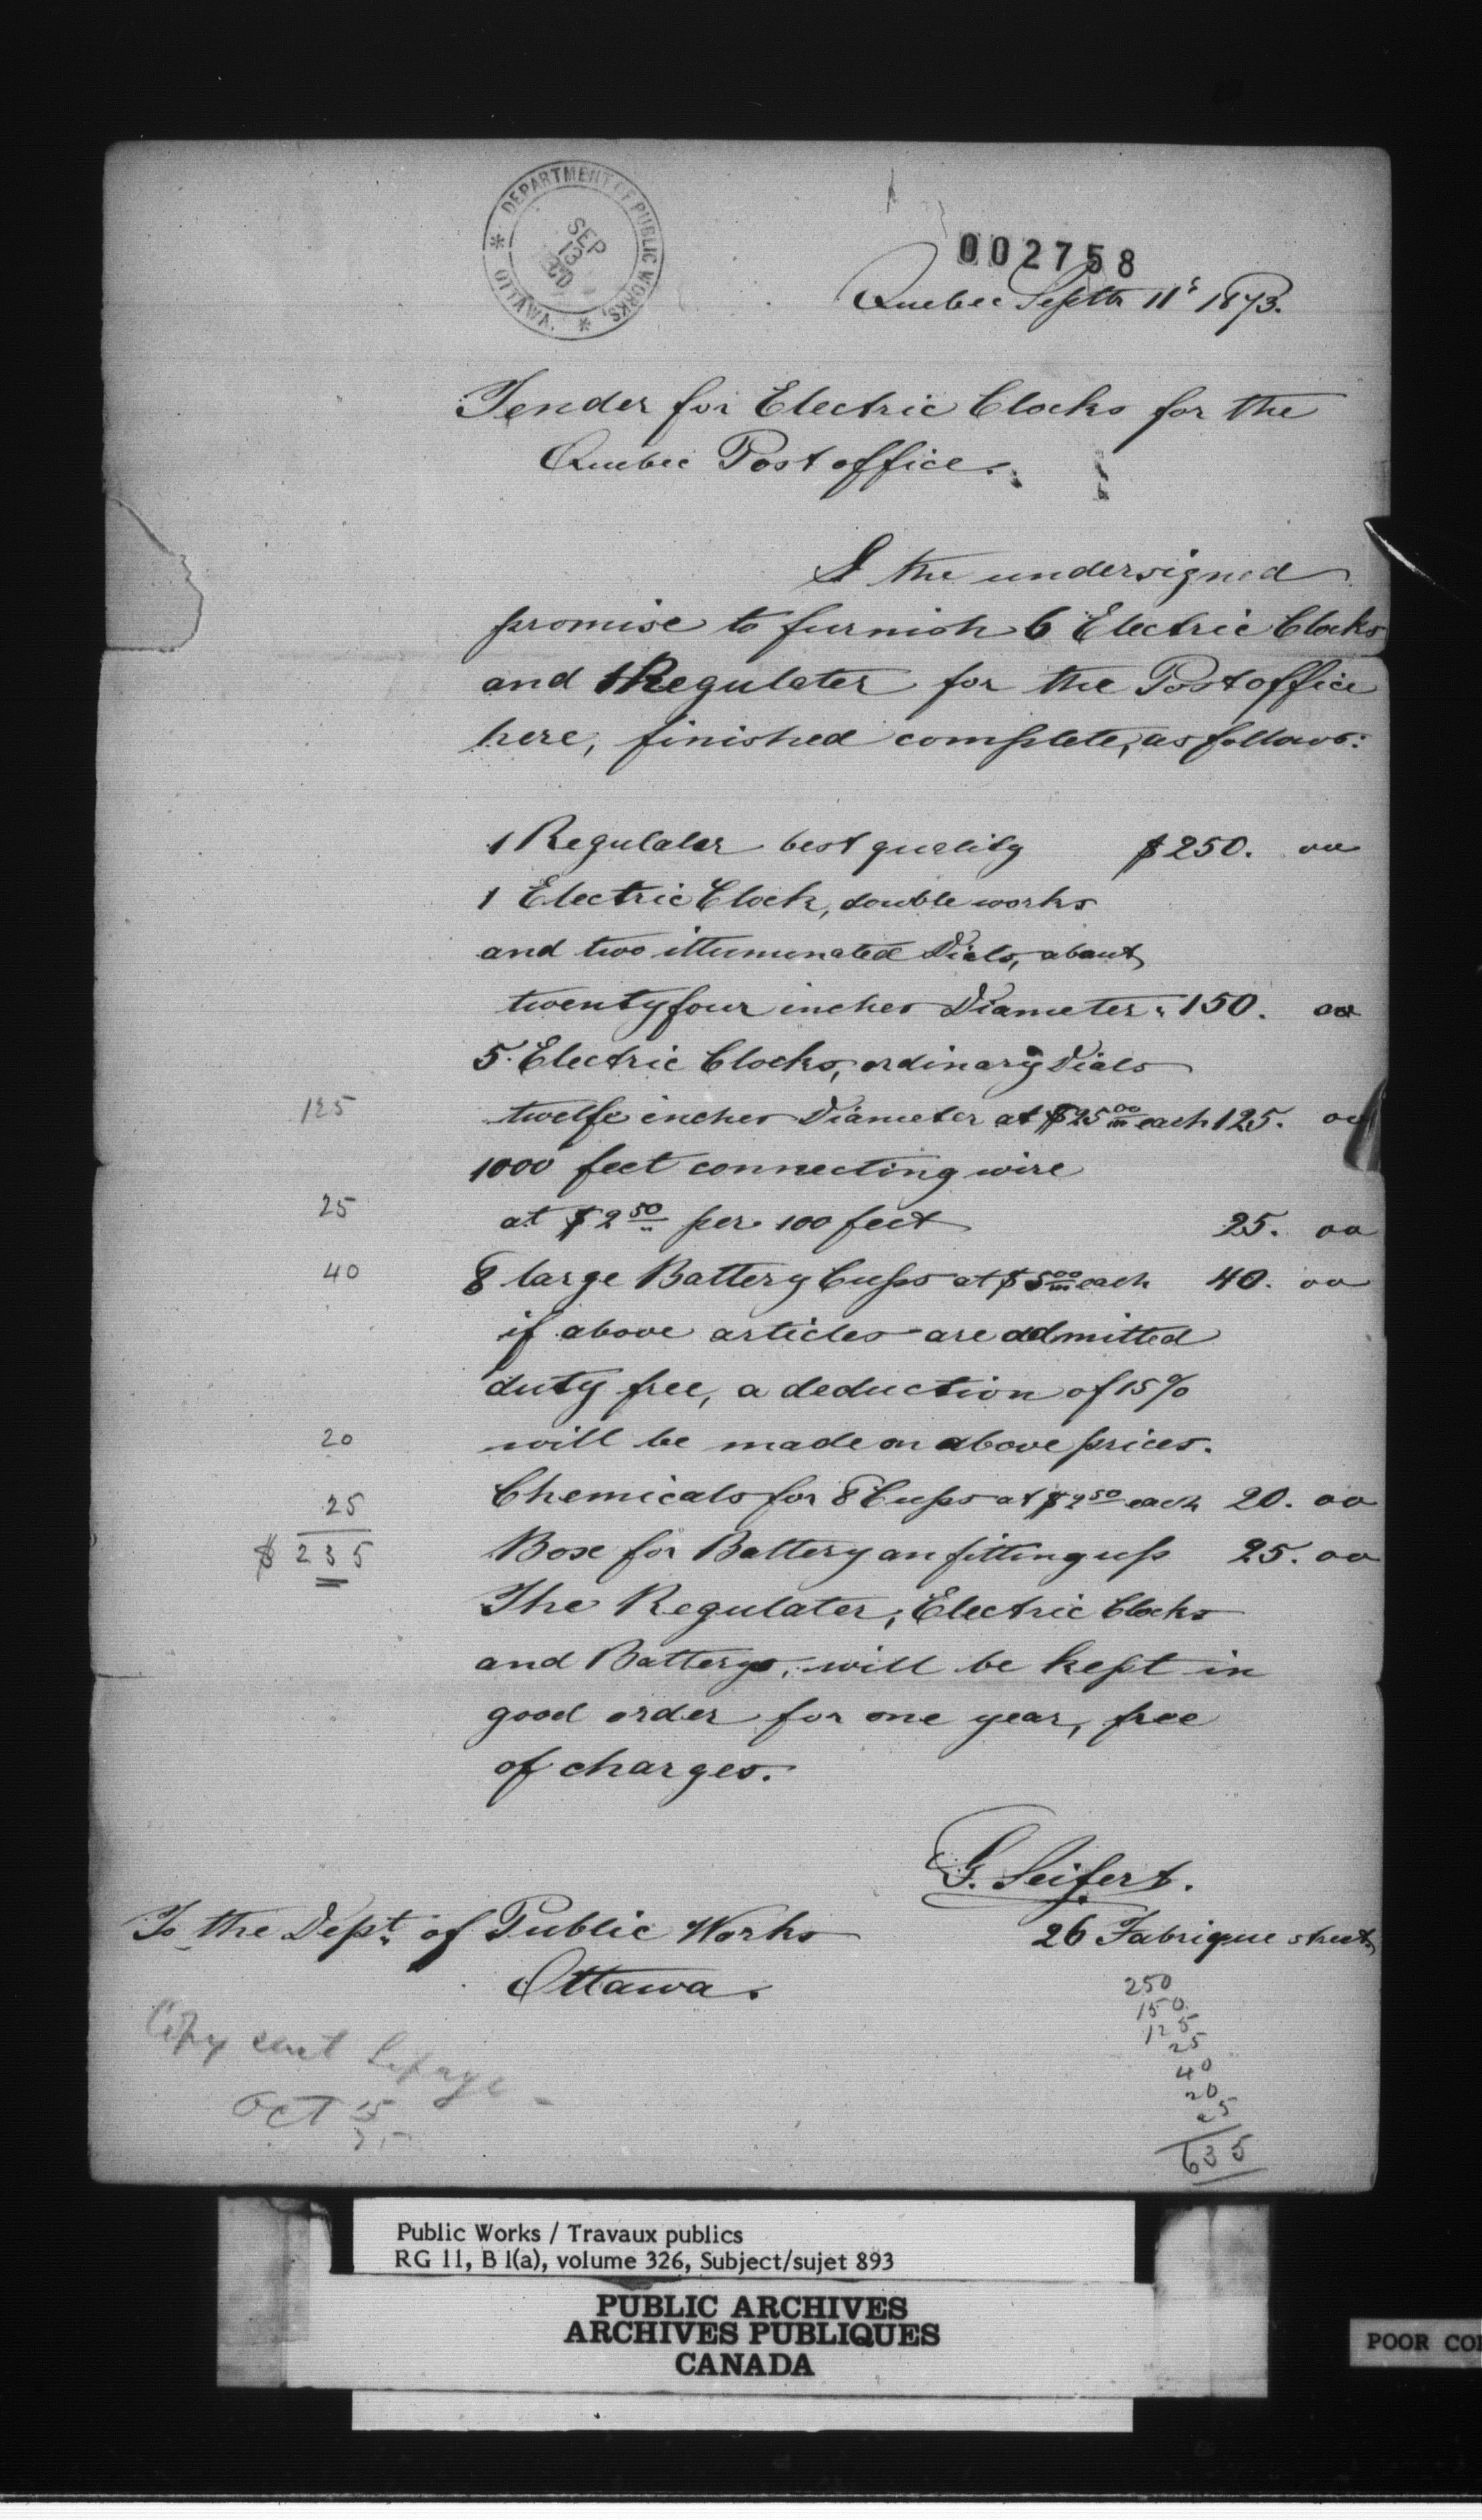 DEPARTMENT OF PUBLIC WORKS,
* OTTAWA. *
SEP
13
002758
Quebec Septbr 11t 1873.
Tender for Electric Clocks for the
Quebec Post office.
I the undersigned
promise to furnish 6 Electric Clocks
and 1 Regulater for the Postoffice
here, finished complete, as follows:
1 Regulater best quality $250. 00
1 Electric Clock, double works
and two illuminated Dials, about
twentyfour inches Diameter " 150. 00
5 Electric Clocks, ordinary Dials
125 twelfe inches Diameter at $25 00 each 125. 00
1000 feet connecting wire
25 at $2 50 per 100 feet 25. 00
40 8 large Battery Cups at $5 00 each 40. 00
if above articles are admitted
duty free, a deduction of 15%
20 will be made on above prices.
25 Chemicals for 8 Cups at $2 50 each 20. 00
$235 Box for Battery an fitting up 25. 00
The Regulater, Electric Clocks
and Batterys, will be kept in
good order for one year, free
of charges.
G. Seifert.
To the Dept. of Public Works 26 Fabrique street
Ottawa.
250
150
125
25
40
20
25
635
Copy sent Lepage
Oct 15
Public Works / Travaux publics
RG 11, B 1(a), volume 326, Subject/sujet 893
PUBLIC ARCHIVES
ARCHIVES PUBLIQUES
CANADA
POOR